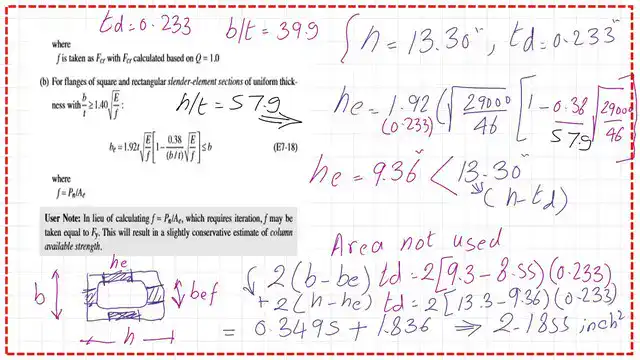 td=0.233 b/t=39.9
where
f is taken as Fcr with Fcr calculated based on Q = 1.0
(b) For flanges of square and rectangular slender-element sections of uniform thick-
ness with b/t ≥ 1.40 √E/f :
h/t = 57.9
be = 1.92t √E/f [1 − 0.38/(b/t) √E/f] ≤ b (E7-18)
where
f = Pn/Ae
User Note: In lieu of calculating f = Pn/Ae, which requires iteration, f may be
taken equal to Fy. This will result in a slightly conservative estimate of column
available strength.
he
b
bef
h
h = 13.30", td = 0.233"
he = 1.92 (0.233) (√29000/46 [1 − 0.38/57.9 √29000/46]
he = 9.36" < 13.30"
(h-td)
Area not used
2(b-be) td = 2[9.3-8.55)(0.233)
+2(h-he) td = 2[13.3-9.36)(0.233)
= 0.3495 + 1.836 ⇒ 2.1855 inch²